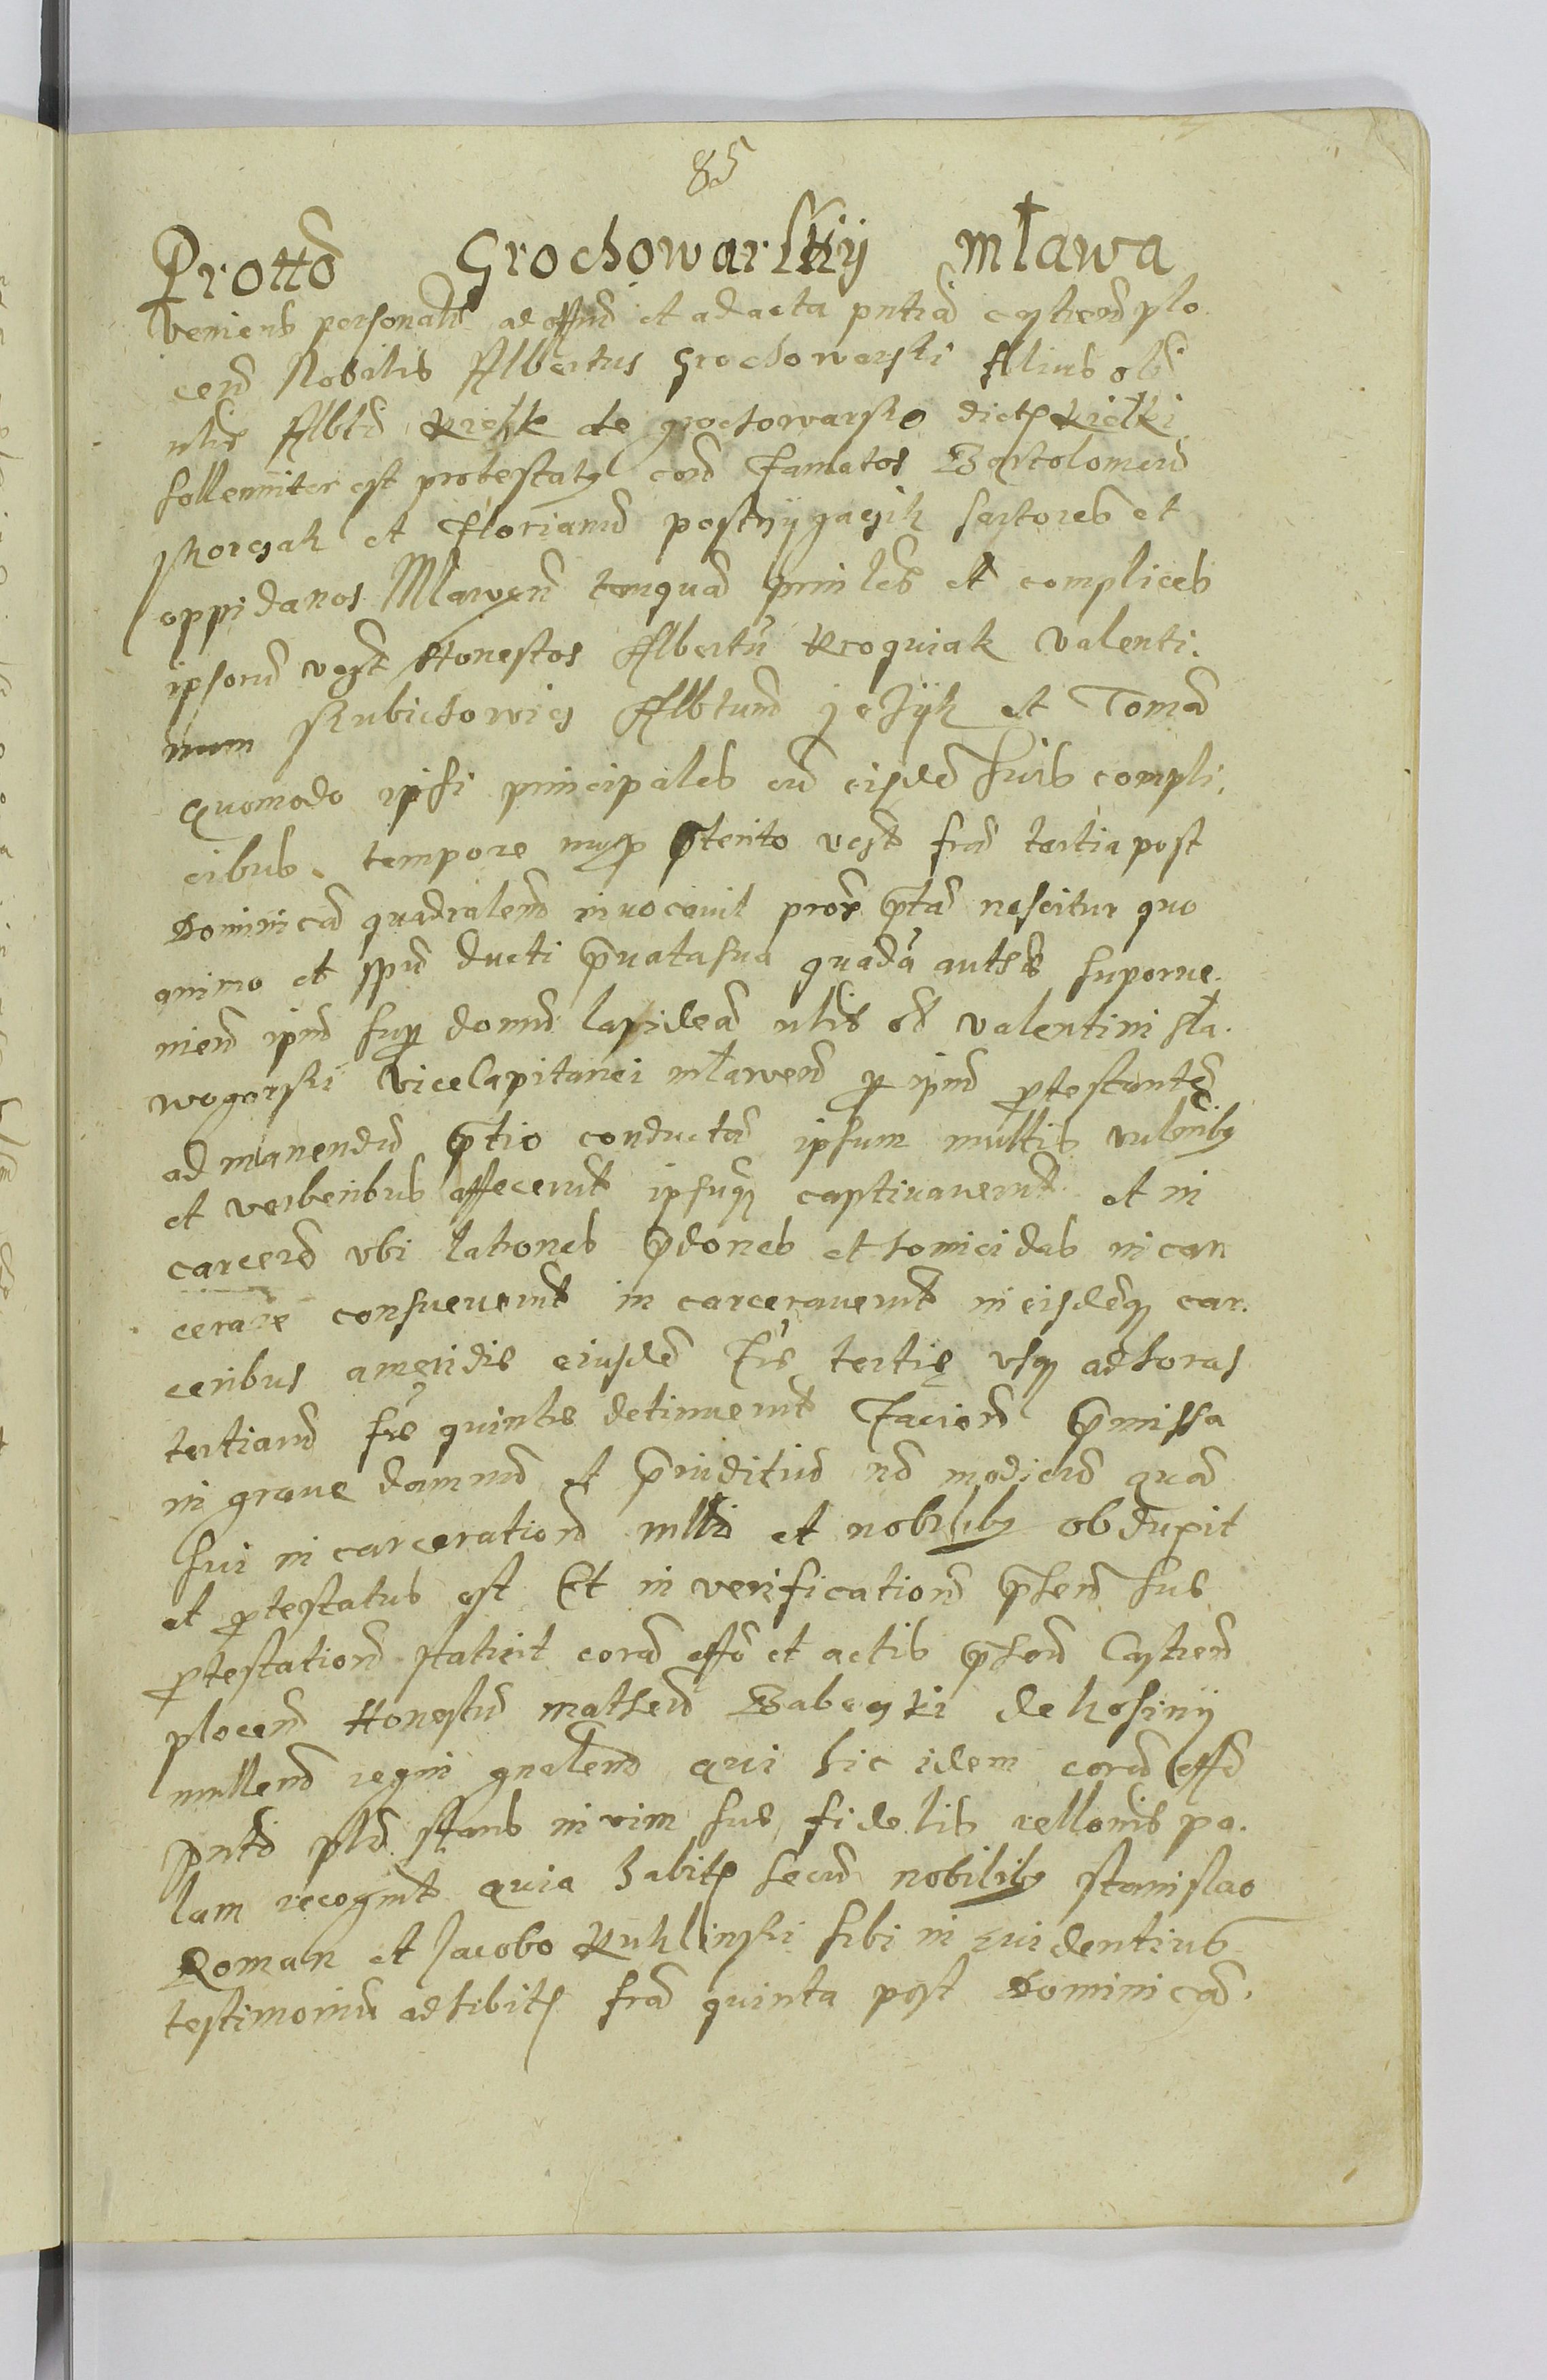 85
Protto Grochowarskij mława
veniens personalr ad offm et ad acta pntia castren plo
cen Nobilis Albertus Grochowarski filius olim
nblis Albti Kiełk de grochowarsko dictus Kiełki
sollemniter est protestatus con Famatos Bartolomeum
et Florianum sartores et
oppidanos Mlawen tanquam prinles et complices
ipsorum vzt Honestos Albertum Kroguiak Valenti.
num Kubichowicz Albtum jezyk et Tomam
quomodo ipsi principales cum eisdem suis compli,
cibus tempore nup preterito vczt fria tertia post
Dominicam quadralem invocavit prox prtam nescitur quo
animo et spu ducti privata sua quadam authte superve,
nien ipm sup domum lapideam nblis olim Valentini sła.
wogorski Vicecapitanei mławen p ipm protestantem
ad manendum prtio conductam ipsum multis vulnribus
et verberibus affecerunt ipsumq captivaverunt et in
carcerem ubi latrones predones et homicidas in car
cerare consueverunt in carceraverunt in eisdemq car.
ceribus a meridie eiusdem Frie tertie usq ad horas
tertiarum frie quinte detinuerunt Faciem premissa
in grave damnum et preiuditium no modicum quam
sui in carceratione mltis et nobilibus obduxit
et protestatus est Et in verificationem prsen sue
protestationis statuit coram offo et actis prsen Castren
plocen Honestum matheum de kosiny
mnllem regni gnalem qui hic idem coram offo
pnti plo stans in vim sue fidelis rellonis pa.
lam recognt quia habitus secum nobilibus stanislao
Roman et Jacobo Kuklinski sibi in evidentius
testimonium adhibitis fria quinta post Dominicam.